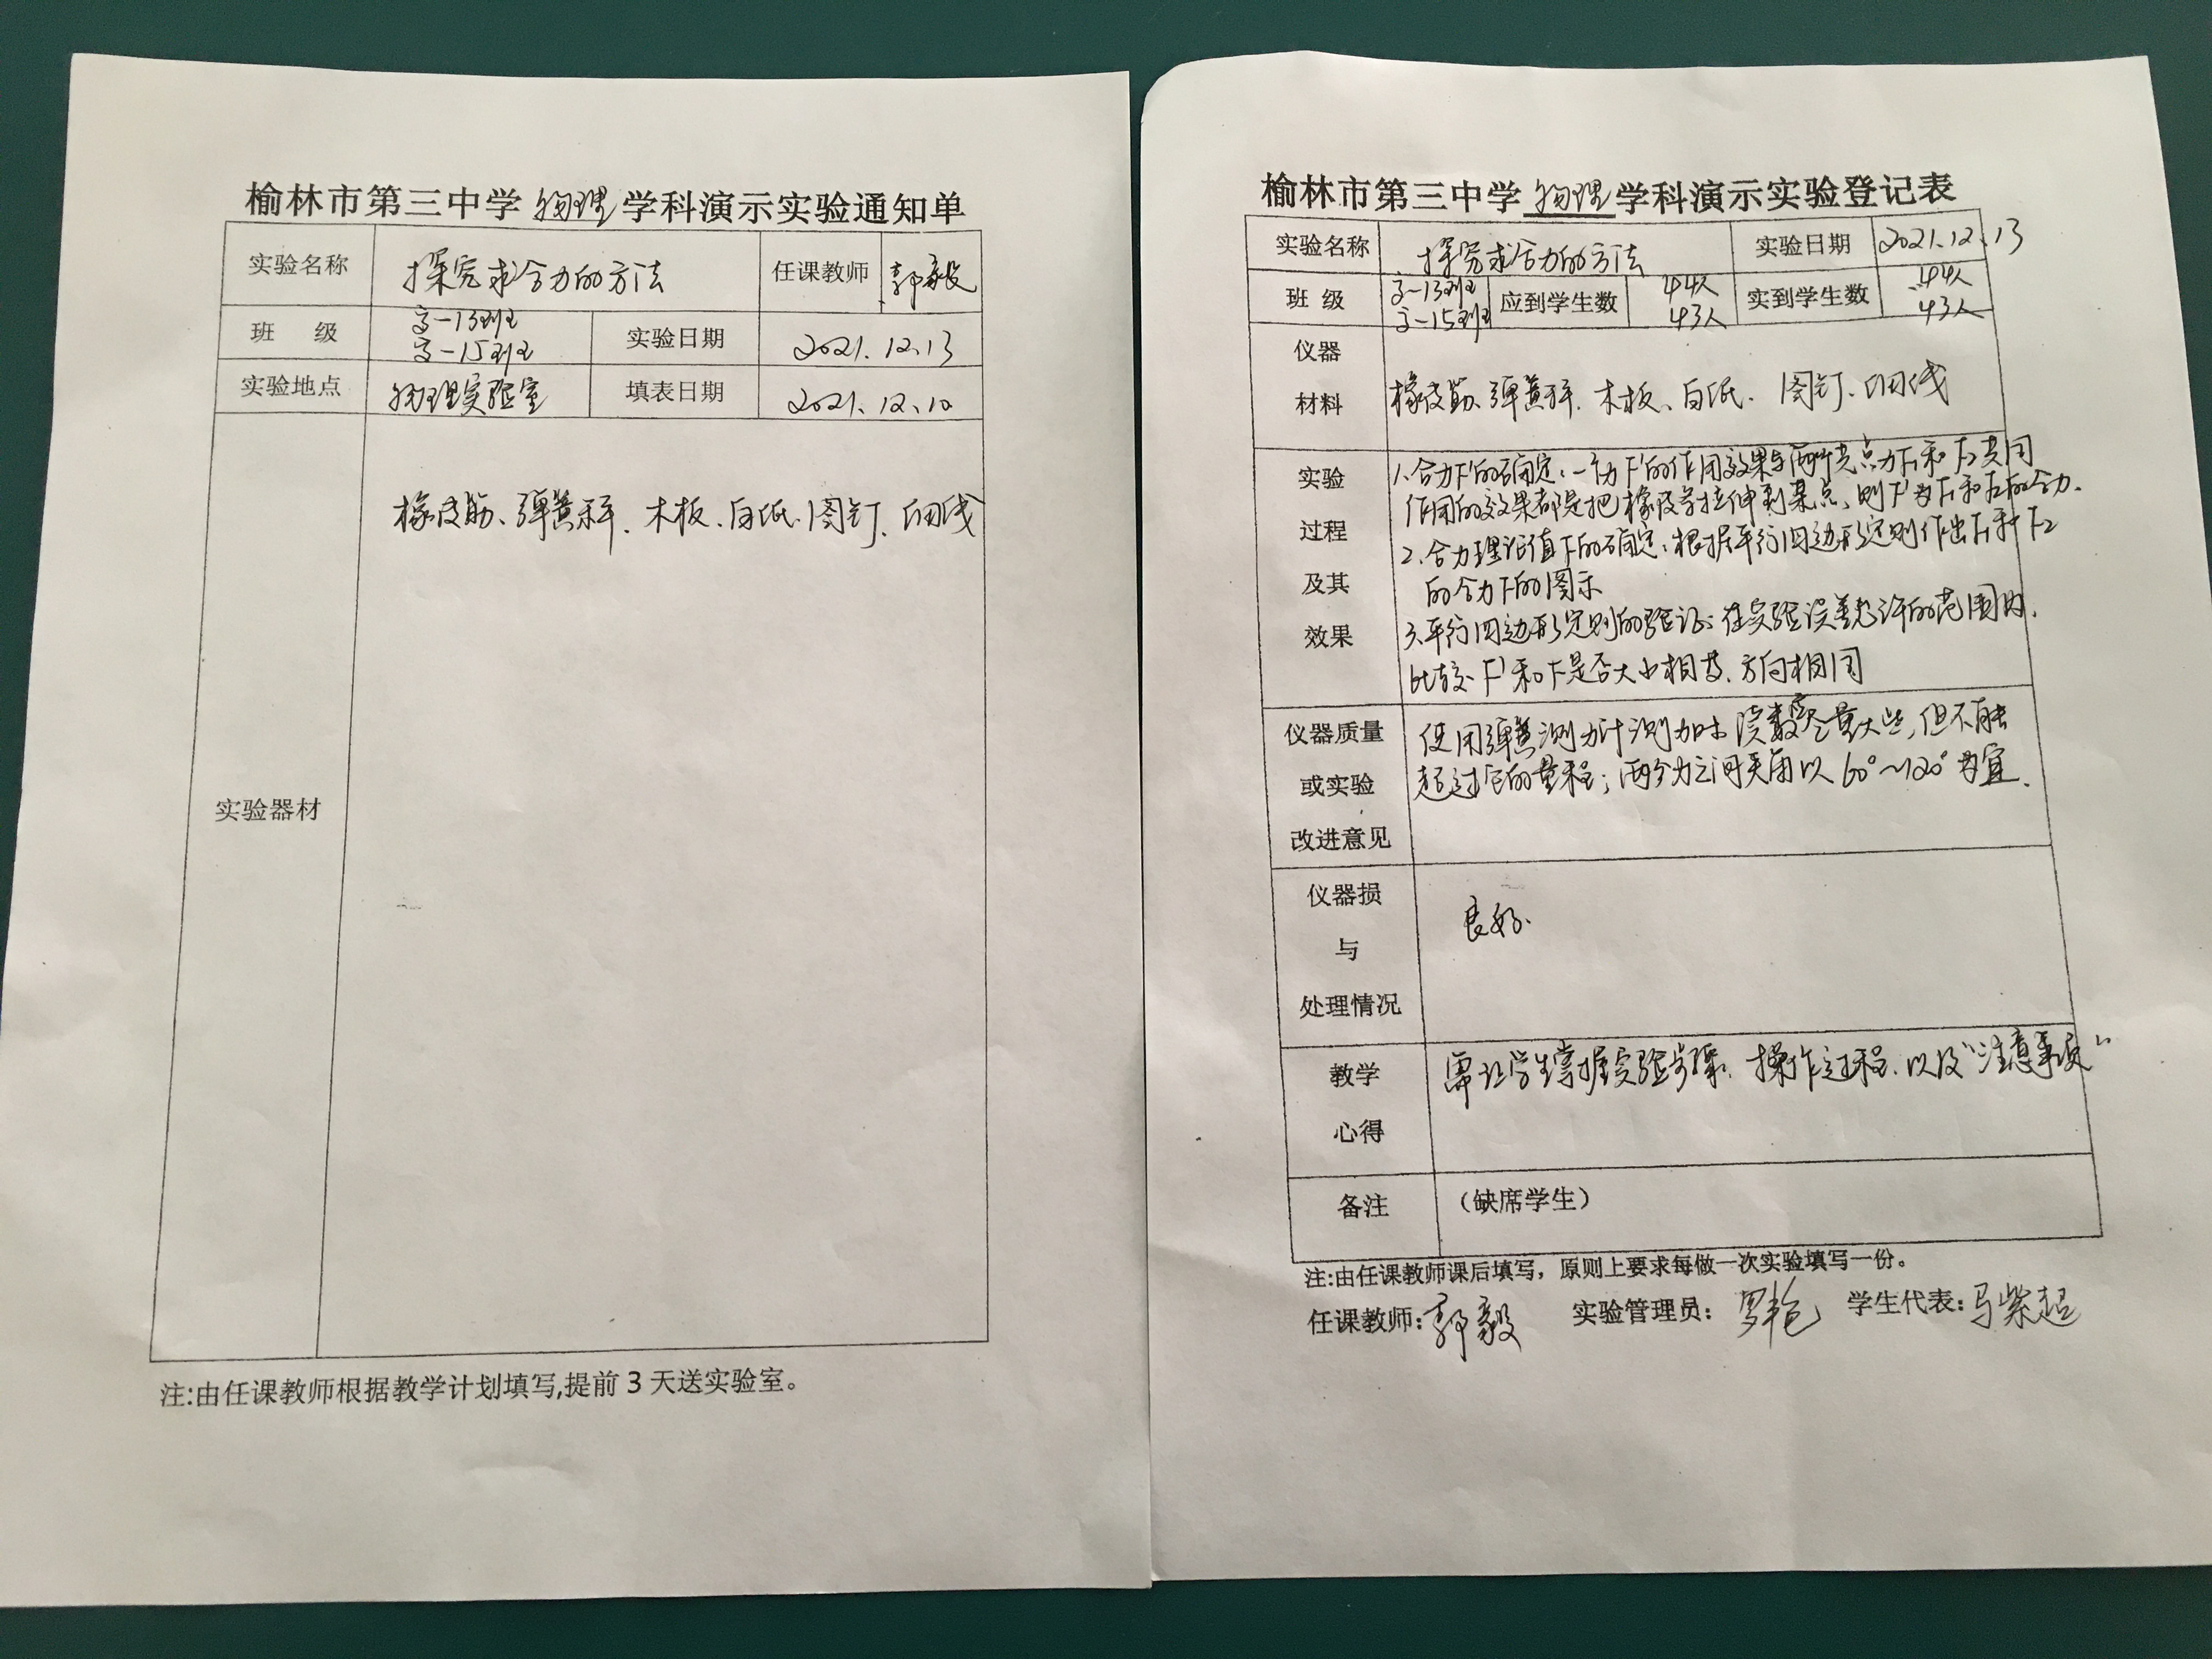 榆林市第三中学物理学科演示实验通知单
实验名称 探究求合力的方法 任课教师 郭毅
班 级 高一13班 高一15班 实验日期 2021.12.13
实验地点 物理实验室 填表日期 2021.12.10
实验器材
橡皮筋、弹簧秤、木板、白纸、图钉、细线
注:由任课教师根据教学计划填写,提前3天送实验室。
榆林市第三中学物理学科演示实验登记表
实验名称 探究求合力的方法 实验日期 2021.12.13
班 级 高一13班 高一15班 应到学生数 44人 43人 实到学生数 44人 43人
仪器
材料
橡皮筋、弹簧秤、木板、白纸、图钉、细线
实验
过程
及其
效果
1.合力F'的确定:一个力F'的作用效果与两个共点力F1和F2共同
作用的效果都是把橡皮条拉伸到某点,则F'为F1和F2的合力.
2.合力理论值F的确定:根据平行四边形定则作出F1和F2
的合力F的图示
3.平行四边形定则的验证:在实验误差允许的范围内,
比较F'和F是否大小相等、方向相同
仪器质量
或实验
改进意见
使用弹簧测力计测力时读数应尽量大些,但不能
超过它的量程;两分力之间夹角以60°~120°为宜.
仪器损
与
处理情况
良好.
教学
心得
需让学生掌握实验步骤、操作过程、以及“注意事项”
备注 （缺席学生）
注:由任课教师课后填写，原则上要求每做一次实验填写一份。
任课教师:郭毅 实验管理员: 罗艳 学生代表:马紫超